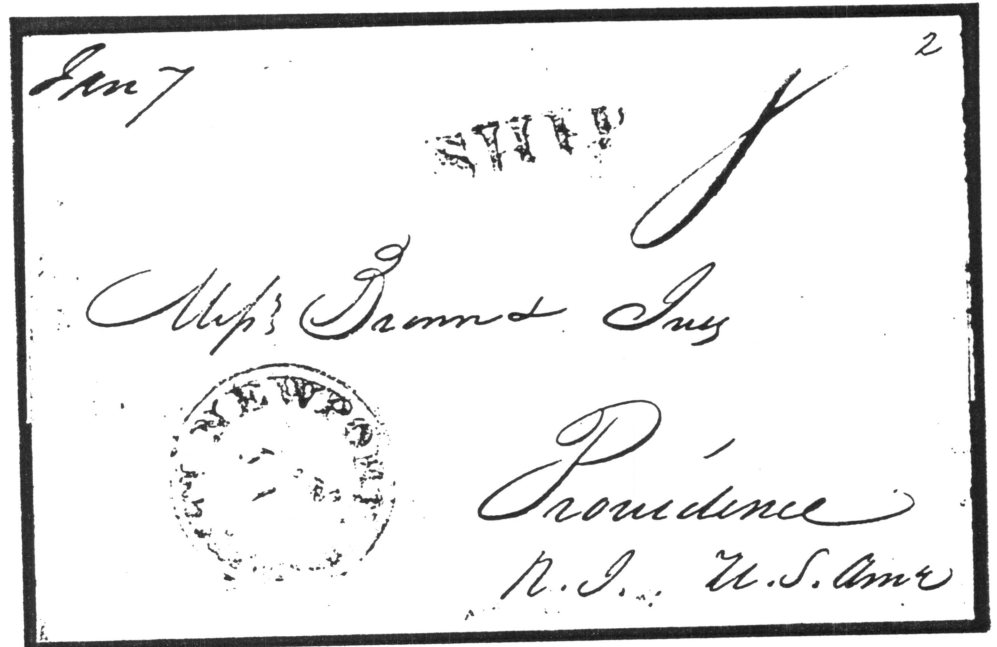 Jan 7
2
SHIP
8
Messrs Brown & Ives
NEWPORT
Providence
R.I. U.S. Ame